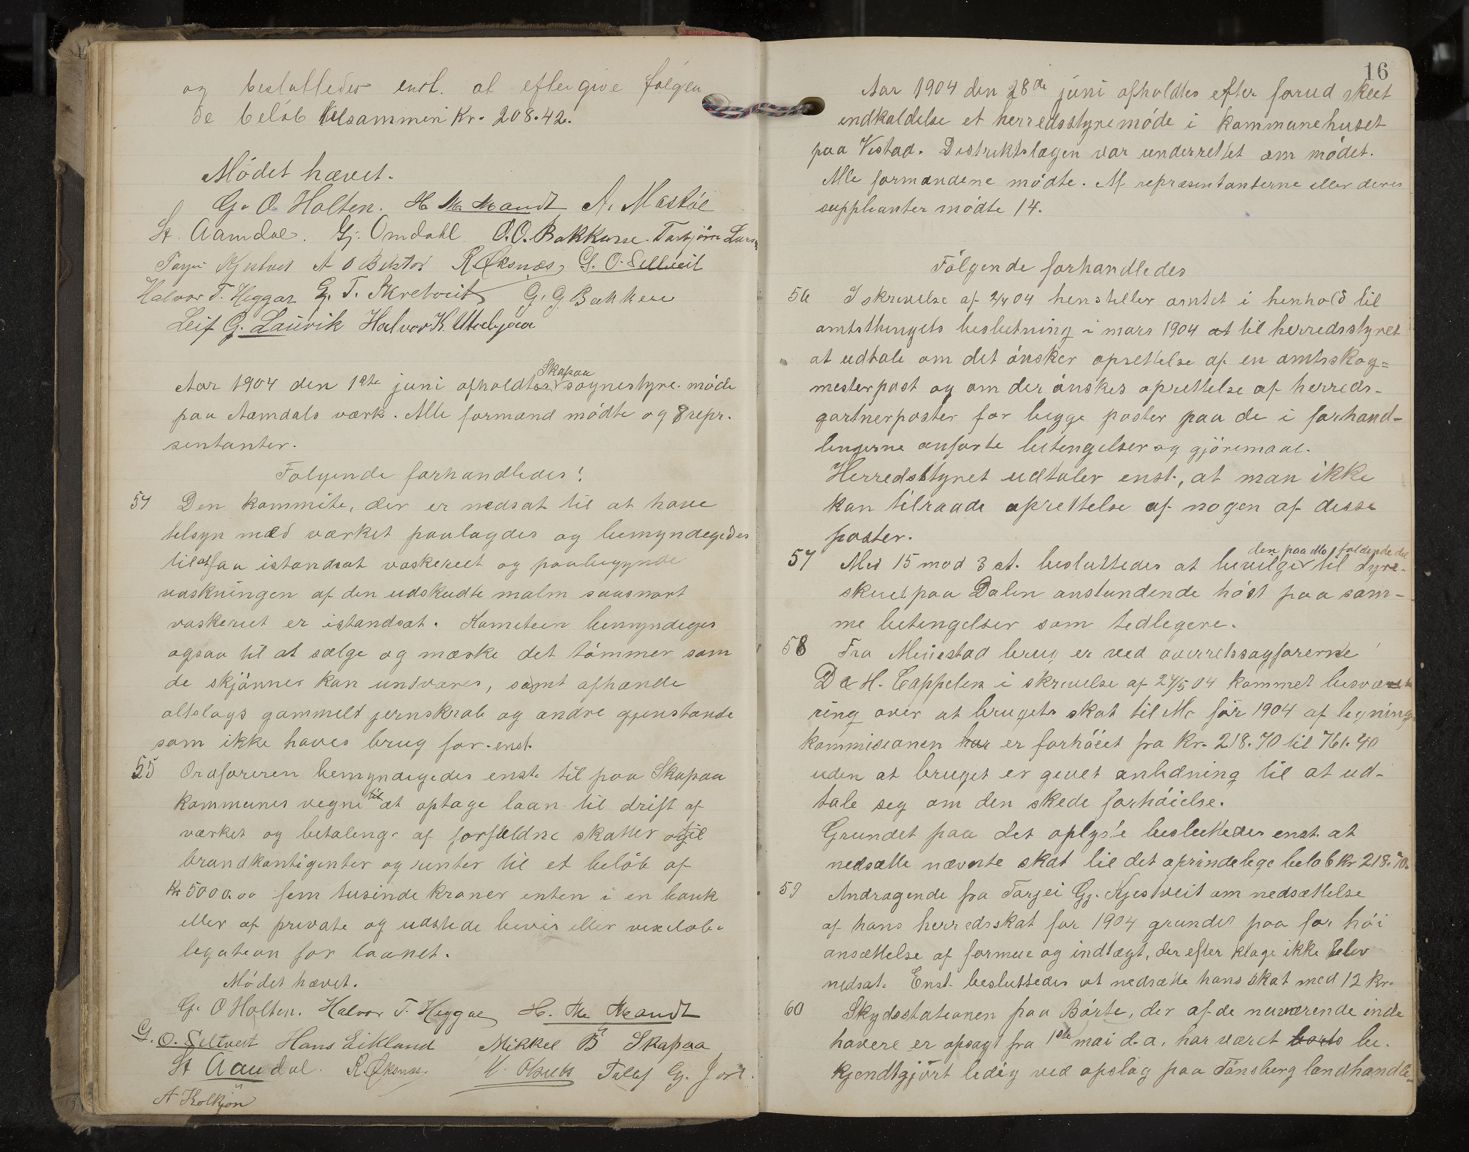 og besluttedes enst. at eftergive følgen
de beløb tilsammen Kr. 208.42.
Mödet hævet.
G. O Holten. H Th Mandt A. Moskil
St. Aamdal. Gj. Omdahl O.O. Bakken Torbjörn
Tarjei Kjestveit A O R Öksnæs, G. O. Seltveit
Halvor T. Heggar G. T. Skretveit G. G Bakken
Leif G. Lauvik Halvor K
Aar 1904 den 1ste juni afholdtes Skafsaa sognestyre-möde
paa Aamdals værk. Alle formænd mödte og 8 repr.
sentanter.
Fölgende forhandledes!
54 Den kommite, der er nedsat til at have
tilsyn med værket paalagdes og bemyndigedes
til at faa istandsat vaskeriet og paabegynde
vaskningen af den udskudte malm saasnart
vaskeriet er istandsat. Komiteen bemyndiges
ogsaa til at sælge og mæske det tömmer som
de skjönner kan undværes, samt afhænde
alslags gammelt jernskrab og andre gjenstande
som ikke haves brug for. enst.
55 Ordföreren bemyndigedes enst. til paa Skafsaa
kommunes vegne til at optage laan til drift af
værket og betaling af forfaldne skatter og til
brandkontigenter og renter til et belöb af
Kr 5000.00 fem tusinde kroner enten i en bank
eller af private og udstede bevis eller vexelob-
ligation for laanet.
Mödet hævet.
G. O Holten. Halvor T. Heggar H. Th Mandt
G. O. Seltveit Hans Eikland Mikkel B Skafsaa
St Aamdal R Öksnæs. Tilef Gj.
A Kolkjön
16
Aar 1904 den 28de juni afholdtes efter forud skeet
indkaldelse et herredsstyremöde i kommunehuset
paa Vistad. Distriktslægen var underrettet om mödet.
Alle formændene mödte. Af repræsentanterne eller deres
suppleanter mödte 14.
Fölgende forhandledes
56 I skrivelse af 2/4 04 henstiller amtet i henhold til
amtsthingets beslutning i mars 1904 at til herredsstyret
at udtale om det önsker oprettelse af en amtsskog=
mesterpost og om der önskes oprettelse af herreds-
gartnerposter for begge poster paa de i forhand-
lingerne anförte betingelser og gjöremaal.
Herredsstyret udtaler enst., at man ikke
kan tilraade oprettelse af nogen af disse
poster.
57 Med 15 mod 3 st. besluttedes at bevilge den paa Mo faldende del til dyre-
skuet paa Dalen anstundende höst paa sam-
me betingelser som tidligere.
58 Fra Ministad brug er ved overretssagförerne
D & H. Cappelen i skrivelse af 24/5 04 kommet besvæ
ring over at brugets skat til Mo for 1904 af ligning
kommissionen har er forhöiet fra Kr. 218.70 til 761.40
uden at bruget er givet anledning til at ud-
tale seg om den skede forhöielse.
Grundet paa det oplyste besluttedes enst. at
nedsætte nævnte skat til det oprindelige belöb kr 218.70.
59 Andragende fra Tarjei Gj. Kjestveit om nedsættelse
af hans herredsskat for 1904 grundet paa for höi
ansættelse af formue og indtægt, der efter klage ikke blev
nedsat. Enst. besluttedes at nedsætte hans skat med 12 kr.
60 Skydsstationen paa Börte, der af de nuværende inde
havere er opsagt fra 1ste mai d.a. har været borte be-
kjendtgjört ledig ved opslag paa Tönsberg landhandle-